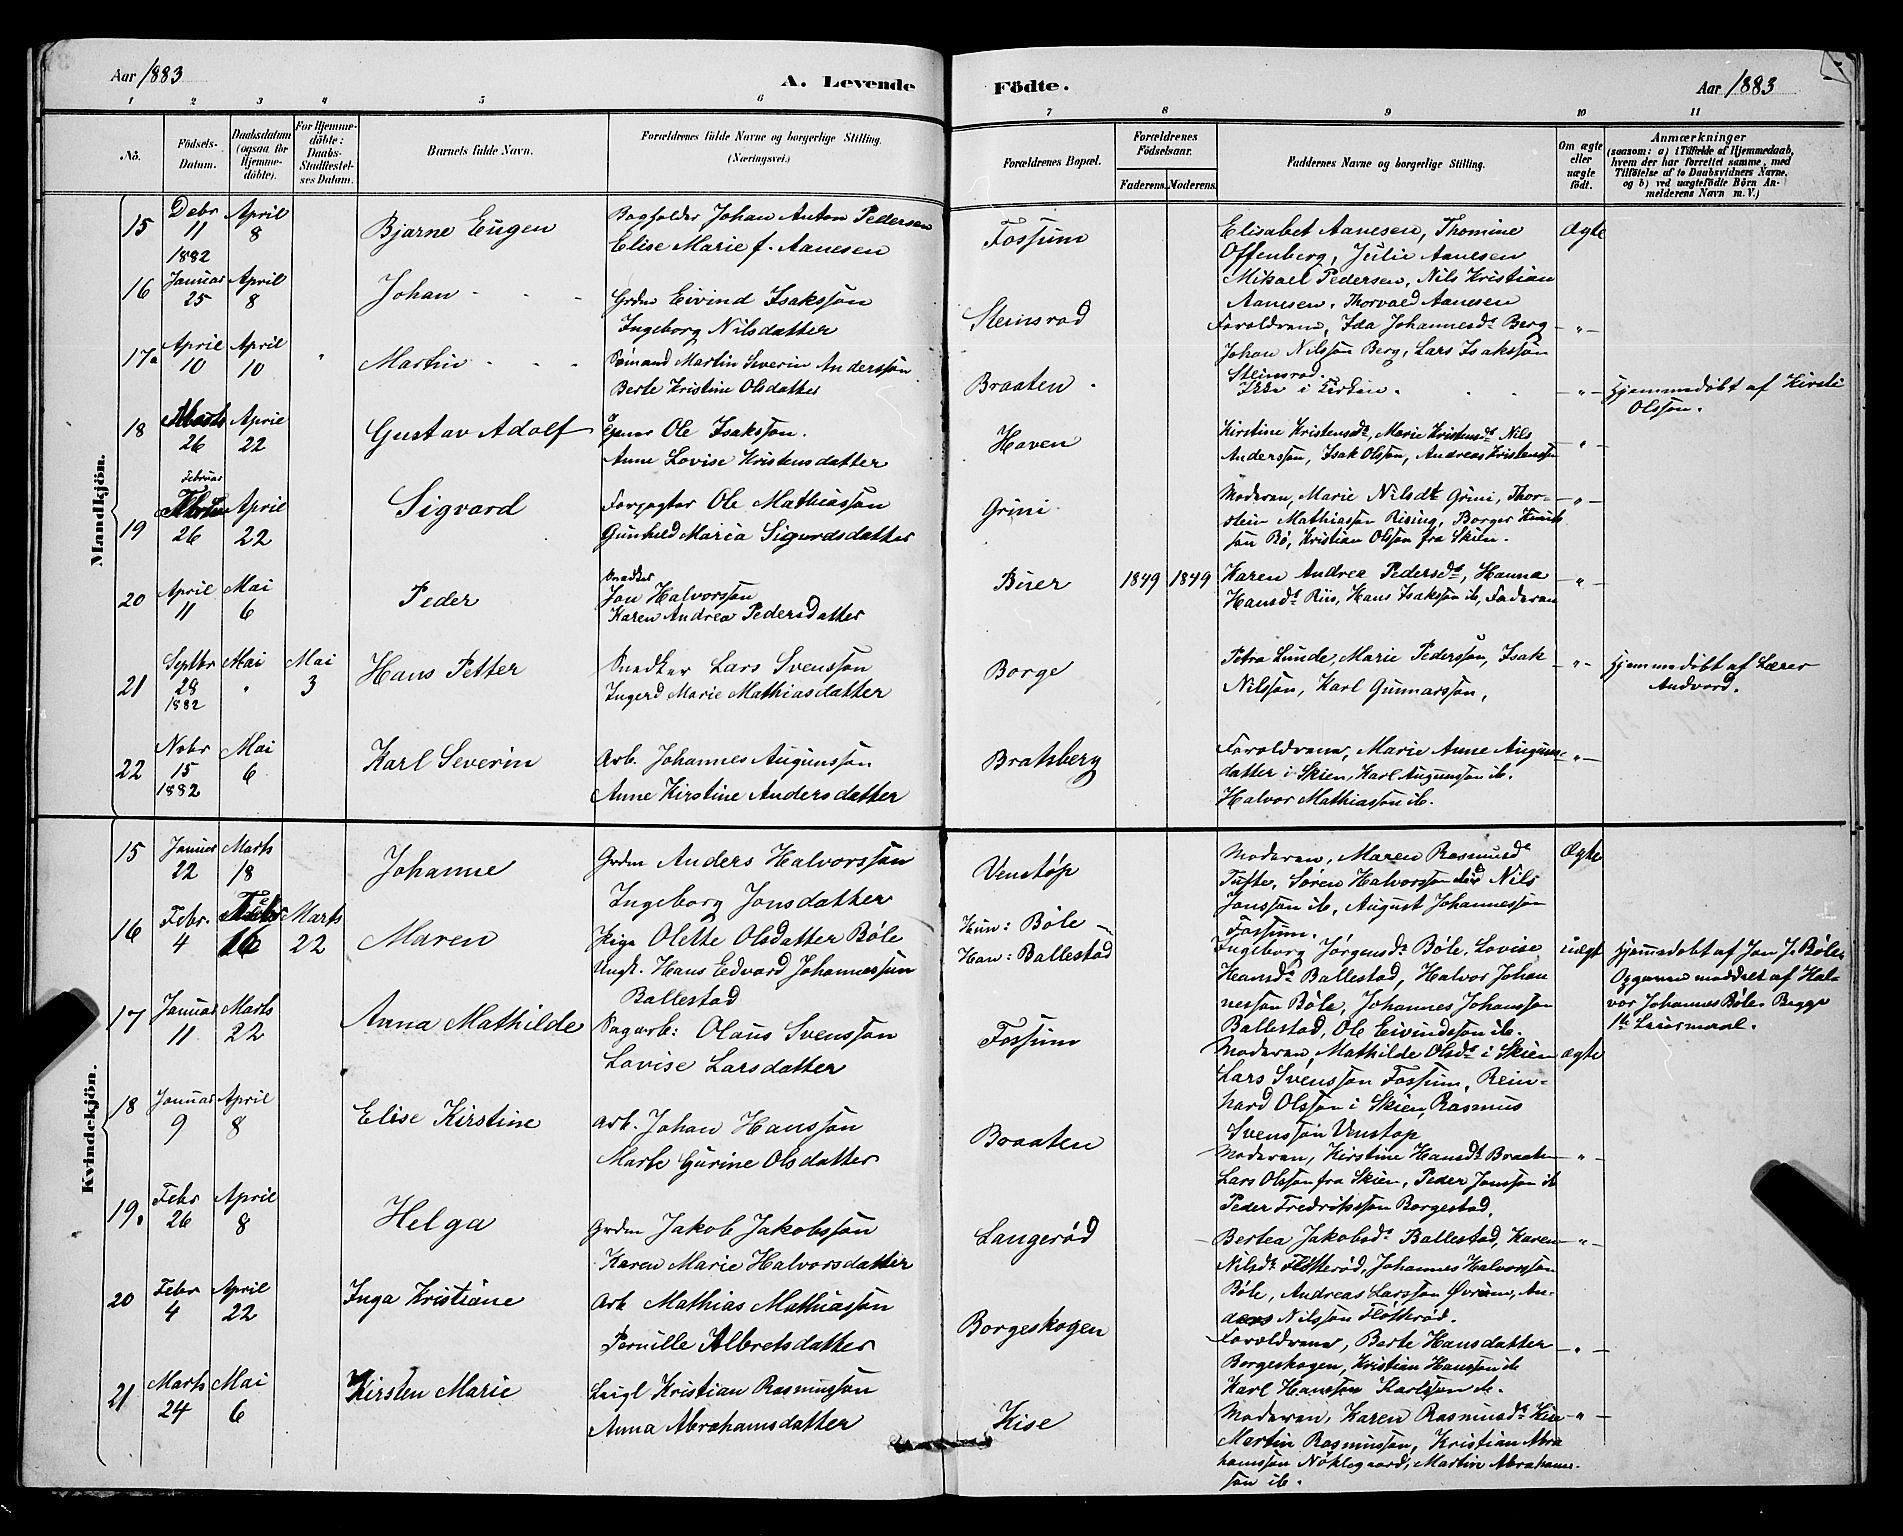 Aar 1883
A. Levende
Födte.
Aar 1883
1 2 3 4 5 6 7 8 9 10 11
No.
Födsels-Datum.
Daabsdatum (ogsaa for Hjemme-döbte).
For Hjemme-döbte: Daabs-Stadfæstel-ses Datum.
Barnets fulde Navn.
Forældrenes fulde Navne og borgerlige Stilling. (Næringsvei.)
Forældrenes Bopæl.
Forældrenes Födselsaar.
Faderens. Moderens.
Faddernes Navne og borgerlige Stilling.
Om ægte eller uægte født.
Anmærkninger
(saasom: a) i Tilfælde af Hjemmedaab, hvem der har forrettet samme, med Tilföielse af to Daabsvidners Navne, og b) ved uægtefödte Börn An-melderens Navn m. V.)
Mandkjön.
15 Debr 11 1882 April 8 Bjarne Eugen
Bogholder Johan Anton Pedersen
Elise Marie f. Aanesen
Fossum
Elisabet Aanesen, Thomine
Offenberg, Julie Aanesen
Mikael Pedersen, Nils Kristian
Aanesen, Thorvald Aanesen
Ægte
16 Januar 25 April 8 Johan
Grdm Eivind Isaksson
Ingeborg Nilsdatter
Steinsrod
Foroldrene, Ida Johannesd. Berg
Johan Nilsson Berg, Lars Isaksson
Steinsrod.
-"-
17 April 10 April 10 " Martin
Sømand Martin Severin Anderssøn
Berte Kristine Olsdatter
Braaten
Ikke i Kirken.
-"-
Hjemmedøbt af Kirsti
Olsson.
18 Marts 26 April 22 Gustav Adolf
Ole Isaksson.
Anne Lovise Kristensdatter
Haven
Kirstine Kristensdt, Marie Kristensdt Nils
Andersson, Isak Olsson, Andreas Kristensson
-"-
19 Februar 26 April 22 Sigvard
Forpagter Ole Mathiasson
Gunhild Maria Sigurdsdatter
Grini
Moderen, Marie Nilsdt Grini, Thor-
stein Mathiasson Rising, Borger Knuts
son Bö, Kristian Olsson fra Skien.
-"-
20 April 11 Mai 6 Peder
Snedker
Jon Halvorsson
Karen Andrea Pedersdatter
Buer 1849 1849
Karen Andrea Pedersdt, Hanna
Hansdt Riis, Hans Isaksson ib, Faderen
-"-
21 Septbr 28 1882 Mai " Mai 3 Hans Petter
Snedker Lars Svensson
Ingerd Marie Mathiasdatter
Borge
Petra Lunde, Marie Pedersson, Isak
Nilsson, Karl Gunnarsson,
-"-
Hjemmedøbt af Lærer
Andvord.
22 Nobr 15 1882 Mai 6 Karl Severin
Arb. Johannes Augunsson
Anne Kirstine Andersdatter
Bratsberg
Foroldrene, Marie Anne Auguns-
datter i Skien, Karl Augunsson ib.
Halvor Mathiasson ib.
-"-
Kvindekjön.
15 Januar 22 Marts 18 Johanne
Grdm Anders Halvorsson
Ingeborg Jonsdatter
Venstøp
Moderen, Maren Rasmusdt
Tufte, Søren Halvorsson Nils
Jonsson ib, August Johannesson
Fossum.
Ægte
16 Febr. 4 16 Marts 22 Maren
Pige Olette Olsdatter Bøle
Ungk. Hans Edvard Johannesson
Ballestad
Hun: Bøle
Han: Ballestad
Ingeborg Jørgensdt Bøle, Lovise
Hansdt Ballestad, Halvor Johan
nesson Bøle, Johannes Johansson
Ballestad, Ole Eivindsson ib.
uægt
Hjemmedøbt af Jon J. Bøle.
Opgaven meddelt af Hal-
vor Johannes Bøle. Begge
1ste Leiermaal.
17 Januar 11 Marts 22 Anna Mathilde
Sagarb: Olaus Svensson
Lovise Larsdatter
Fossum
Moderen, Mathilde Olsdt i Skien
Lars Svensson Fossum, Rein-
hard Olsson i Skien, Rasmus
Svensson Venstøp
Ægte
18 Januar 9 April 8 Elise Kirstine
Arb. Johan Hansson
Marte Gurine Olsdatter
Braaten
Moderen, Kirstine Hansdt Braaten
Lars Olsson fra Skien, Peder Jonsson ib
Peder Fredriksson Borgestad.
-"-
19 Febr 26 April 8 Helga
Grdm Jakob Jakobsson
Karen Marie Halvorsdatter
Langerød
Bertea Jakobsdt Ballestad, Karen
Nilsdt Fløtterød, Johannes Halvorsson
Bøle, Andreas Larsson Øvrum, An-
ders Nilsson Fløtterød.
-"-
20 Febr 4 April 22 Inga Kristiane
Arb Mathias Mathiasson
Pernille Albretsdatter
Borgeskogen
Foroldrene, Berte Hansdatter
Borgeskogen, Kristian Hansson ib
Karl Hansson Karlsson ib.
-"-
21 Marts 24 Mai 6 Kirsten Marie
Leigl Kristian Rasmusson
Anna Abrahamsdatter
Kise
Moderen, Karen Rasmusdt Kise
Martin Rasmusson, Kristian Abra
hamsson Nöklegaard, Martin Abrahams-
son ib.
-"-